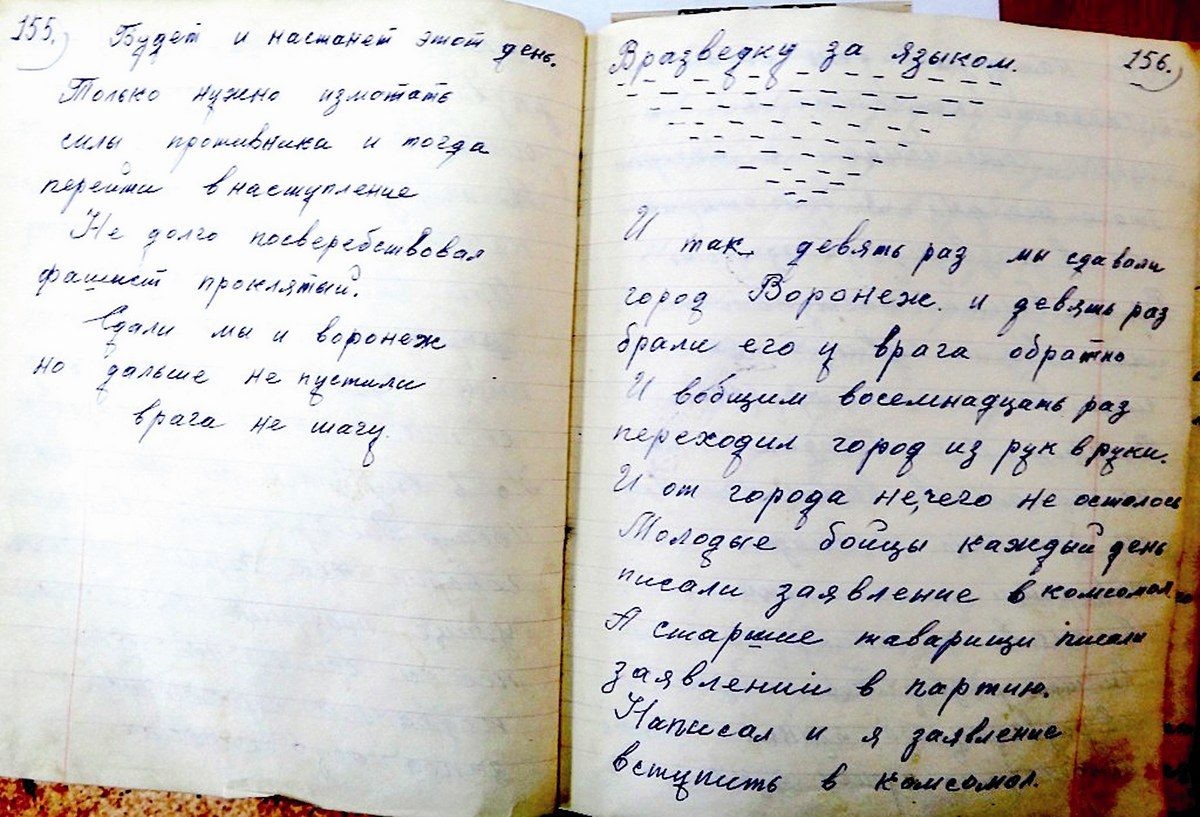 155.) Будет и настанет этот день.
Только нужно измотать
силы противника и тогда
перейти в наступление
Не долго посверебствовал
фашист проклятый.
Сдали мы и воронеж
но дальше не пустили
врага не шагу.
В разведку за языком. 156.)
И так девять раз мы сдавали
город Воронеж. и девять раз
брали его у врага обратно
И вобщим восемнадцать раз
переходил город из рук в руки.
И от города нечего не осталось
Молодые бойцы каждый день
писали заявление в комсомол
А старшие таварищи писали
заявлений в партию.
Написал и я заявление
вступить в комсомол.